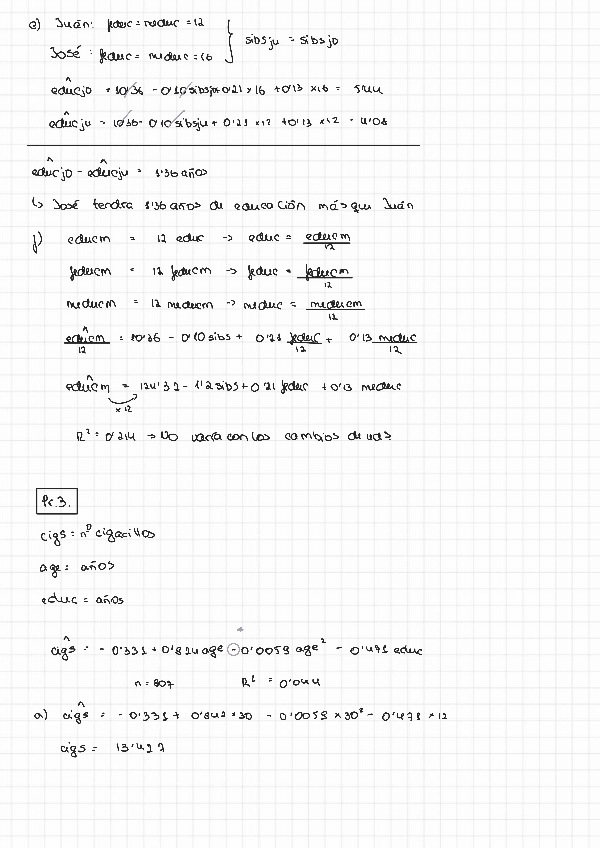 e) Juán: feduc = meduc = 12
José: feduc = meduc = 16
sibsju = sibsjo
educjo = 10'36 - 0'10 sibsjo + 0'21 × 16 + 0'13 × 16 = 5'44
educju = 10'36 - 0'10 sibsju + 0'21 × 12 + 0'13 × 12 = 4'08
educjo - educju = 1'36 años
↳ José tendra 1'36 años de educación más que Juán
f) educm = 12 educ → educ = educm / 12
feducm = 12 feducm → feduc = feducm / 12
meducm = 12 meducm → meduc = meducm / 12
educm / 12 = 10'36 - 0'10 sibs + 0'21 feduc / 12 + 0'13 meduc / 12
educm = 124'32 - 1'2 sibs + 0'21 feduc + 0'13 meduc
× 12
R² = 0'214 → No varia con los cambios de uds
Pr.3.
cigs = nº cigarrillos
age = años
educ = años
+
cigs = - 0'331 + 0'824 age - 0'0059 age² - 0'471 educ
n = 807 R² = 0'044
a) cigs = - 0'331 + 0'842 × 30 - 0'0059 × 30² - 0'471 × 12
cigs = 13'427